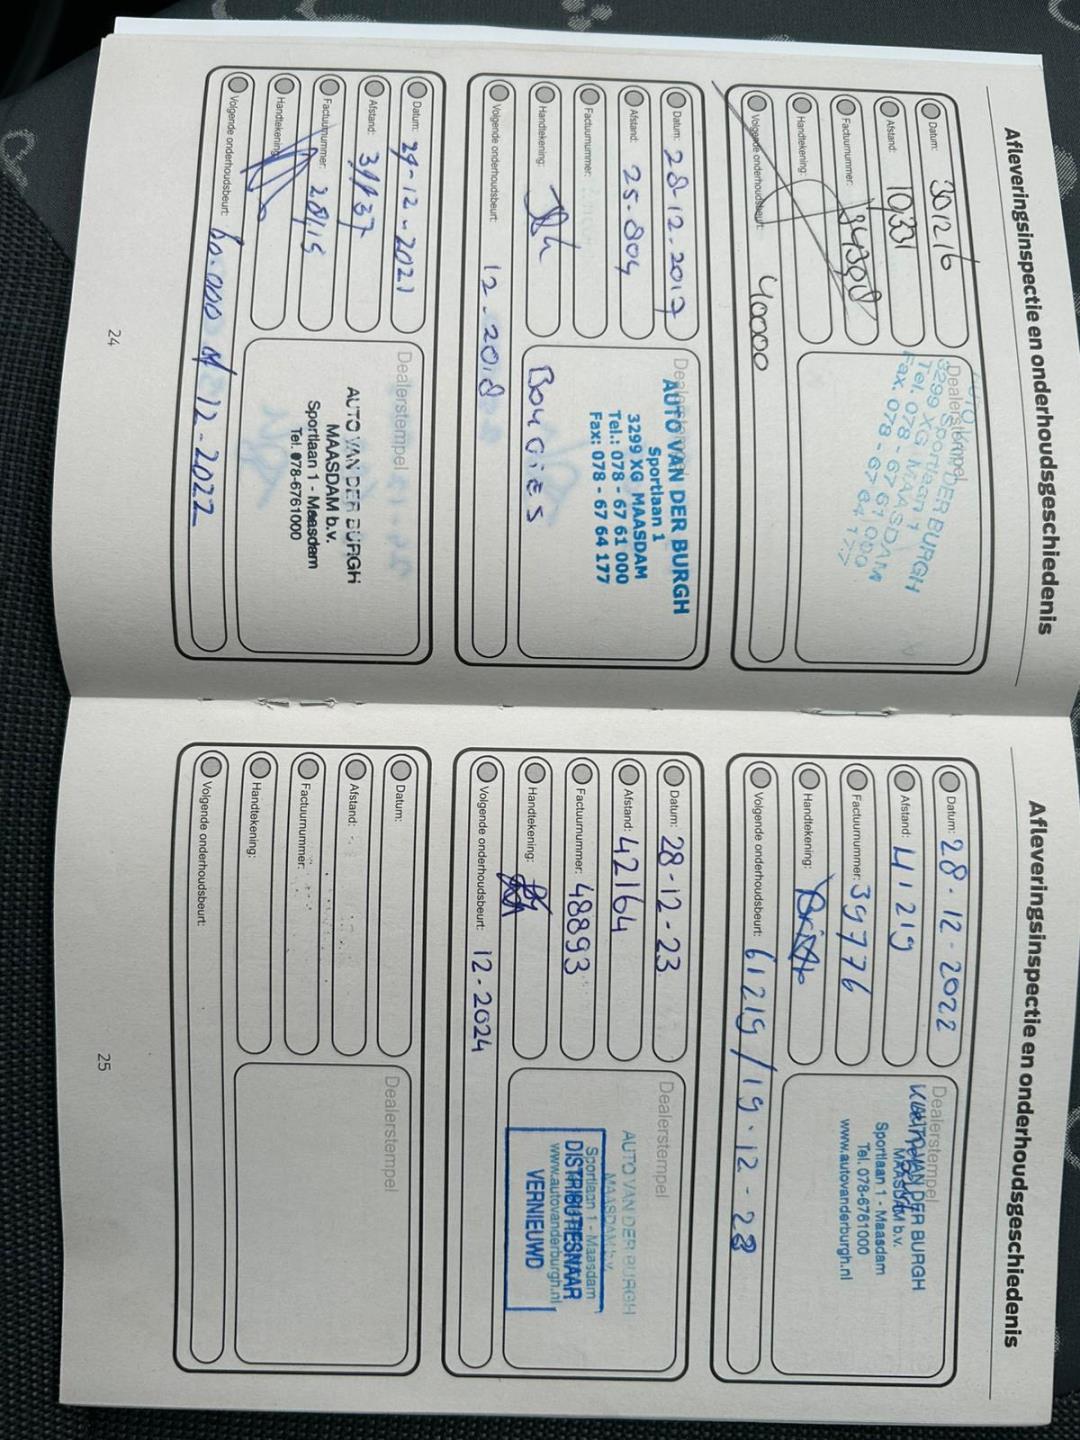 Afleveringsinspectie en onderhoudsgeschiedenis
Datum: 301216
Afstand: 10331
Factuurnummer:
Handtekening:
Volgende onderhoudsbeurt: 40000
Dealerstempel
Sportlaan 1
3299 XG MAASDAM
Tel. 078 - 67 61 000
Fax. 078 - 67 64 177
Datum: 28-12-2017
Afstand: 25.804
Factuurnummer:
Handtekening:
Volgende onderhoudsbeurt: 12-2018
Dealerstempel
AUTO VAN DER BURGH
Sportlaan 1
3299 XG MAASDAM
Tel.: 078 - 67 61 000
Fax: 078 - 67 64 177
BOUGIES
Datum: 29-12-2021
Afstand:
Factuurnummer: 28115
Handtekening:
Volgende onderhoudsbeurt: 12-2022
Dealerstempel
AUTO VAN DER BURGH
MAASDAM b.v.
Sportlaan 1 - Maasdam
Tel. 078-6761000
24
Afleveringsinspectie en onderhoudsgeschiedenis
Datum: 28-12-2022
Afstand: 41219
Factuurnummer: 39776
Handtekening:
Volgende onderhoudsbeurt: 61219/19-12-23
Dealerstempel
VAN DER BURGH
MAASDAM b.v.
Sportlaan 1 - Maasdam
Tel. 078-6761000
www.autovanderburgh.nl
Datum: 28-12-23
Afstand: 42164
Factuurnummer: 48893
Handtekening:
Volgende onderhoudsbeurt: 12-2024
Dealerstempel
AUTO VAN DER BURGH
MAASDAM b.v.
Sportlaan 1 - Maasdam
DISTRIBUTIESNAAR
www.autovanderburgh.nl
VERNIEUWD
Datum:
Afstand:
Factuurnummer:
Handtekening:
Volgende onderhoudsbeurt:
Dealerstempel
25